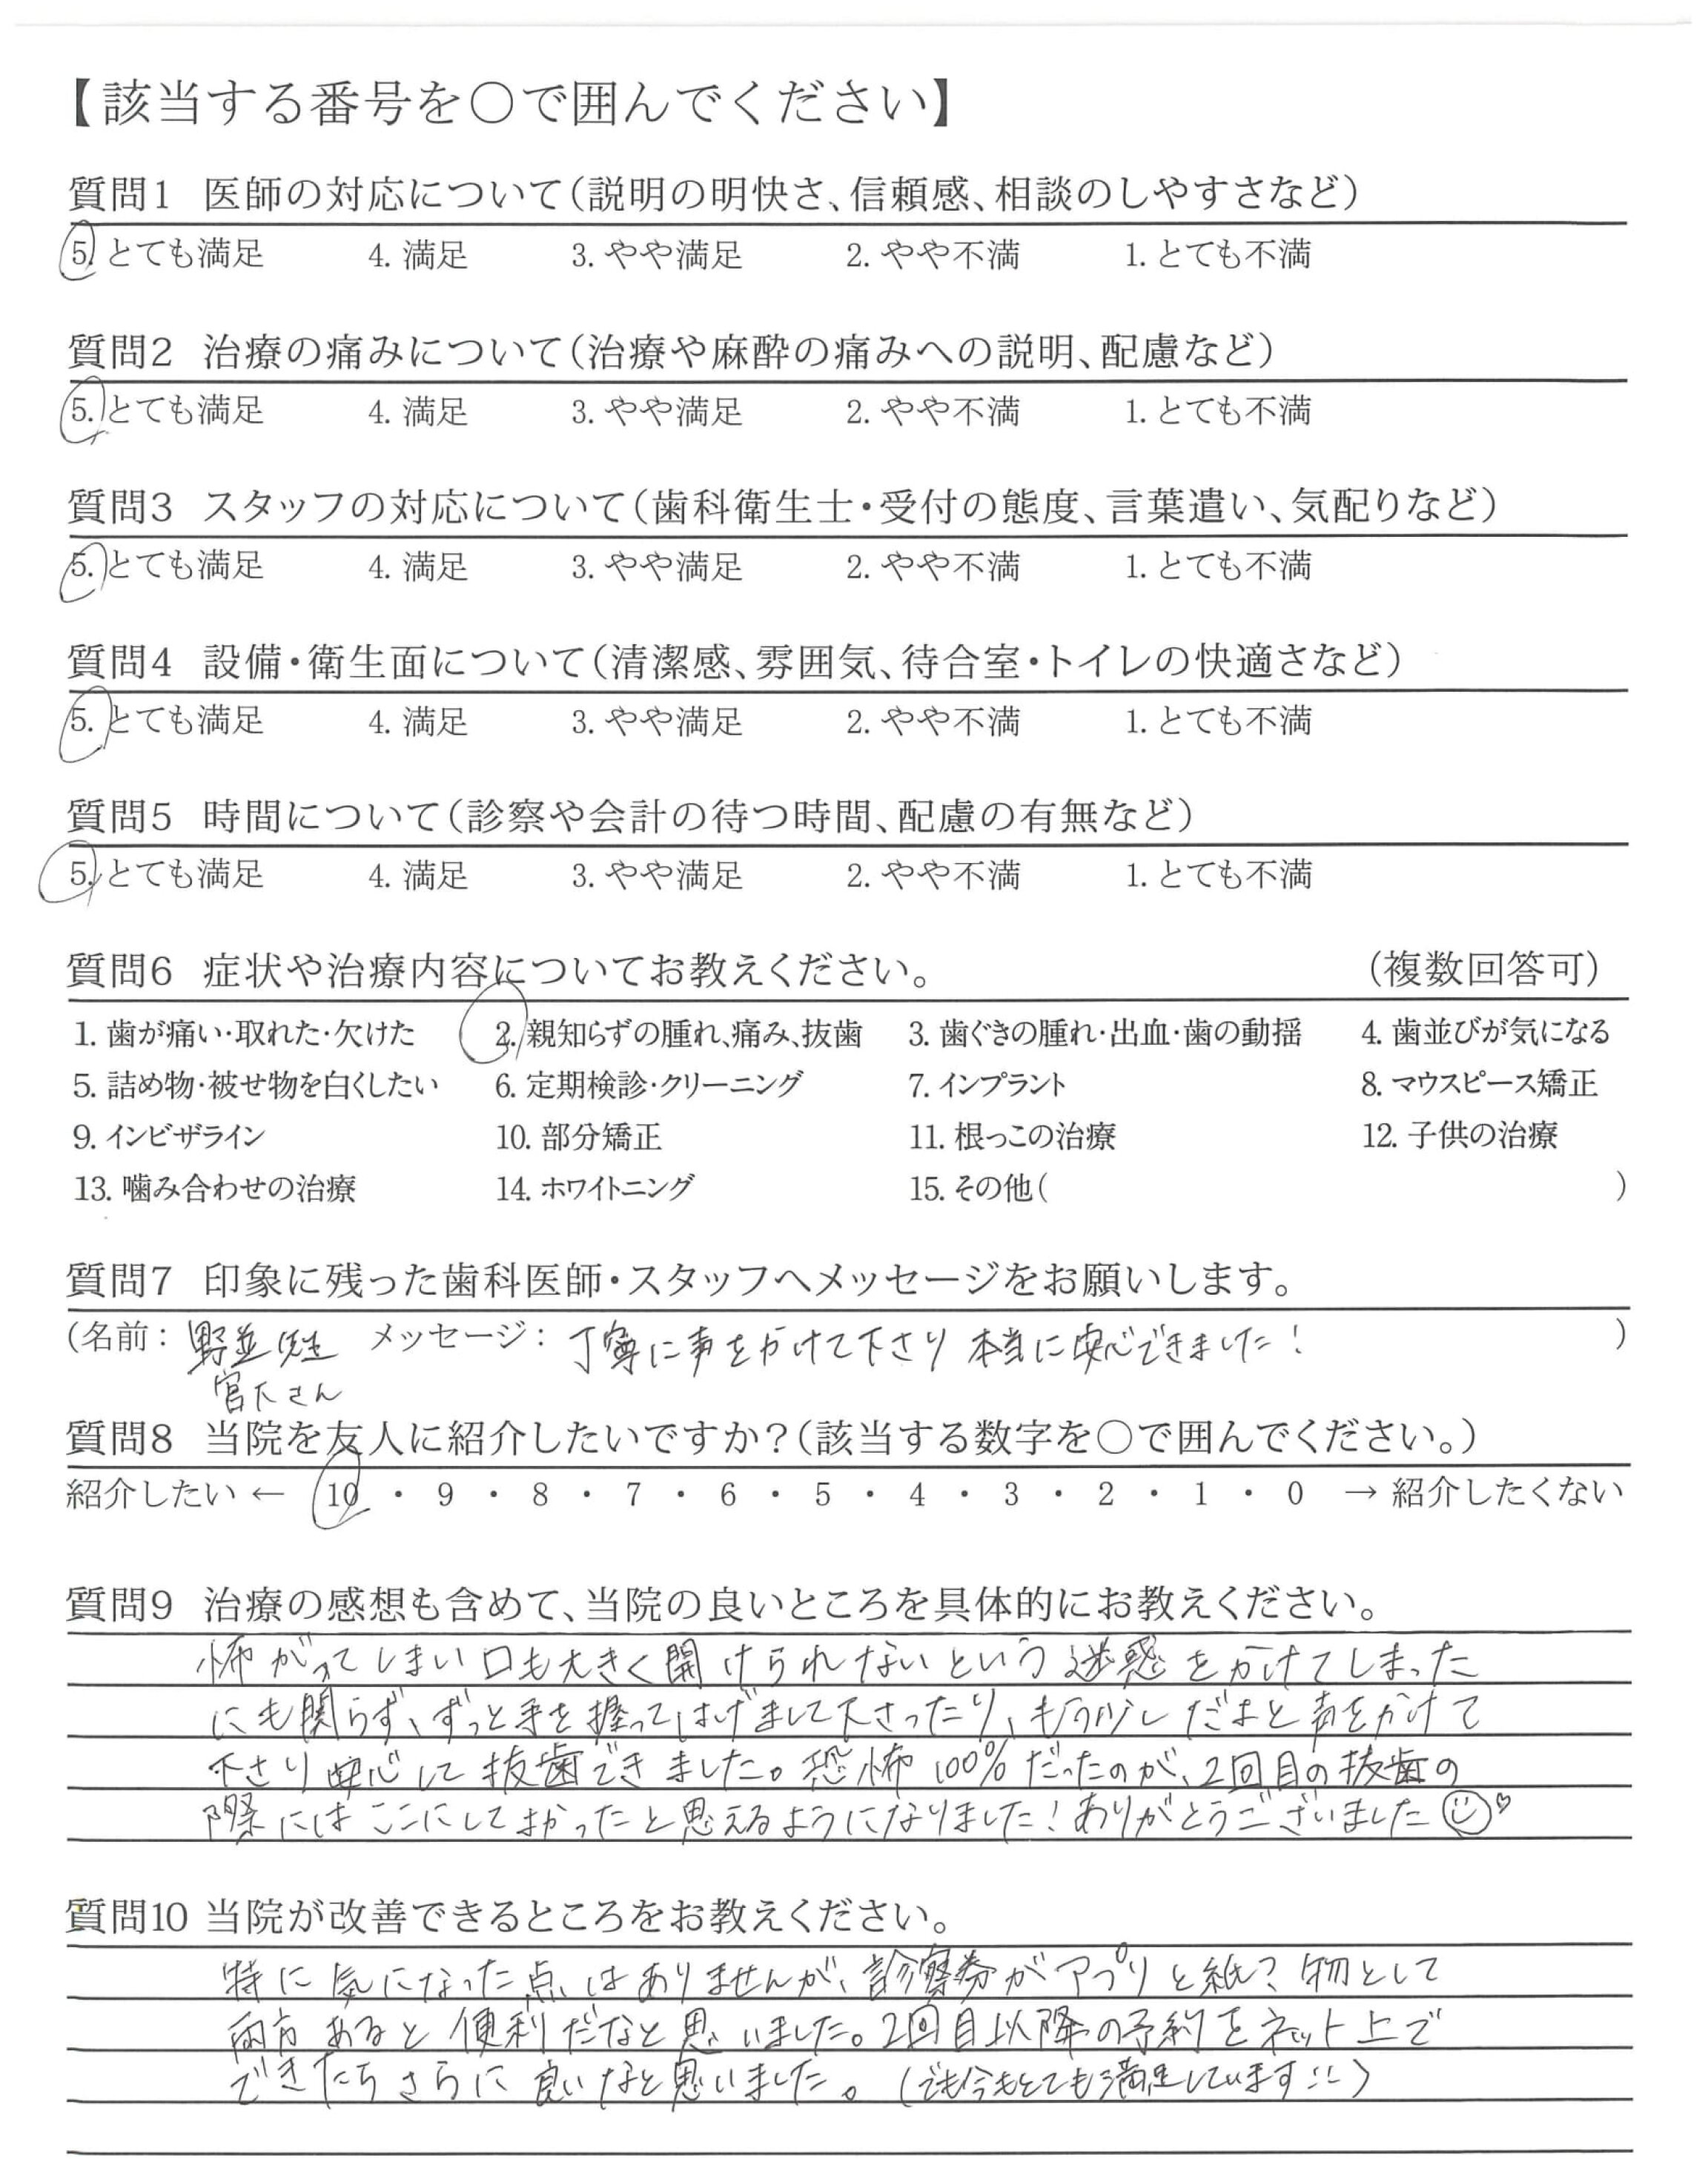 【該当する番号を〇で囲んでください】
質問1 医師の対応について(説明の明快さ、信頼感、相談のしやすさなど)
5. とても満足 4. 満足 3. やや満足 2. やや不満 1. とても不満
質問2 治療の痛みについて(治療や麻酔の痛みへの説明、配慮など)
5. とても満足 4. 満足 3. やや満足 2. やや不満 1. とても不満
質問3 スタッフの対応について(歯科衛生士・受付の態度、言葉遣い、気配りなど)
5. とても満足 4. 満足 3. やや満足 2. やや不満 1. とても不満
質問4 設備・衛生面について(清潔感、雰囲気、待合室・トイレの快適さなど)
5. とても満足 4. 満足 3. やや満足 2. やや不満 1. とても不満
質問5 時間について(診察や会計の待つ時間、配慮の有無など)
5. とても満足 4. 満足 3. やや満足 2. やや不満 1. とても不満
質問6 症状や治療内容についてお教えください。 (複数回答可)
1. 歯が痛い・取れた・欠けた 2. 親知らずの腫れ、痛み、抜歯 3. 歯ぐきの腫れ・出血・歯の動揺 4. 歯並びが気になる
5. 詰め物・被せ物を白くしたい 6. 定期検診・クリーニング 7. インプラント 8. マウスピース矯正
9. インビザライン 10. 部分矯正 11. 根っこの治療 12. 子供の治療
13. 噛み合わせの治療 14. ホワイトニング 15. その他( )
質問7 印象に残った歯科医師・スタッフへメッセージをお願いします。
(名前: 野並先生 メッセージ: 丁寧に声をかけて下さり 本当に安心できました! )
宮下さん
質問8 当院を友人に紹介したいですか?(該当する数字を〇で囲んでください。)
紹介したい ← 10 ・ 9 ・ 8 ・ 7 ・ 6 ・ 5 ・ 4 ・ 3 ・ 2 ・ 1 ・ 0 → 紹介したくない
質問9 治療の感想も含めて、当院の良いところを具体的にお教えください。
怖がってしまい口も大きく開けられないという迷惑をかけてしまった
にも関らず、ずっと手を握ってはげまして下さったり、もう少しだよと声をかけて
下さり安心して抜歯できました。恐怖100%だったのが、2回目の抜歯の
際にはここにしてよかったと思えるようになりました!ありがとうございました
質問10 当院が改善できるところをお教えください。
特に気になった点はありませんが、診察券がアプリと紙?物として
両方あると便利だなと思いました。2回目以降の予約をネット上で
できたらさらに良いなと思いました。(でも今もとても満足しています)